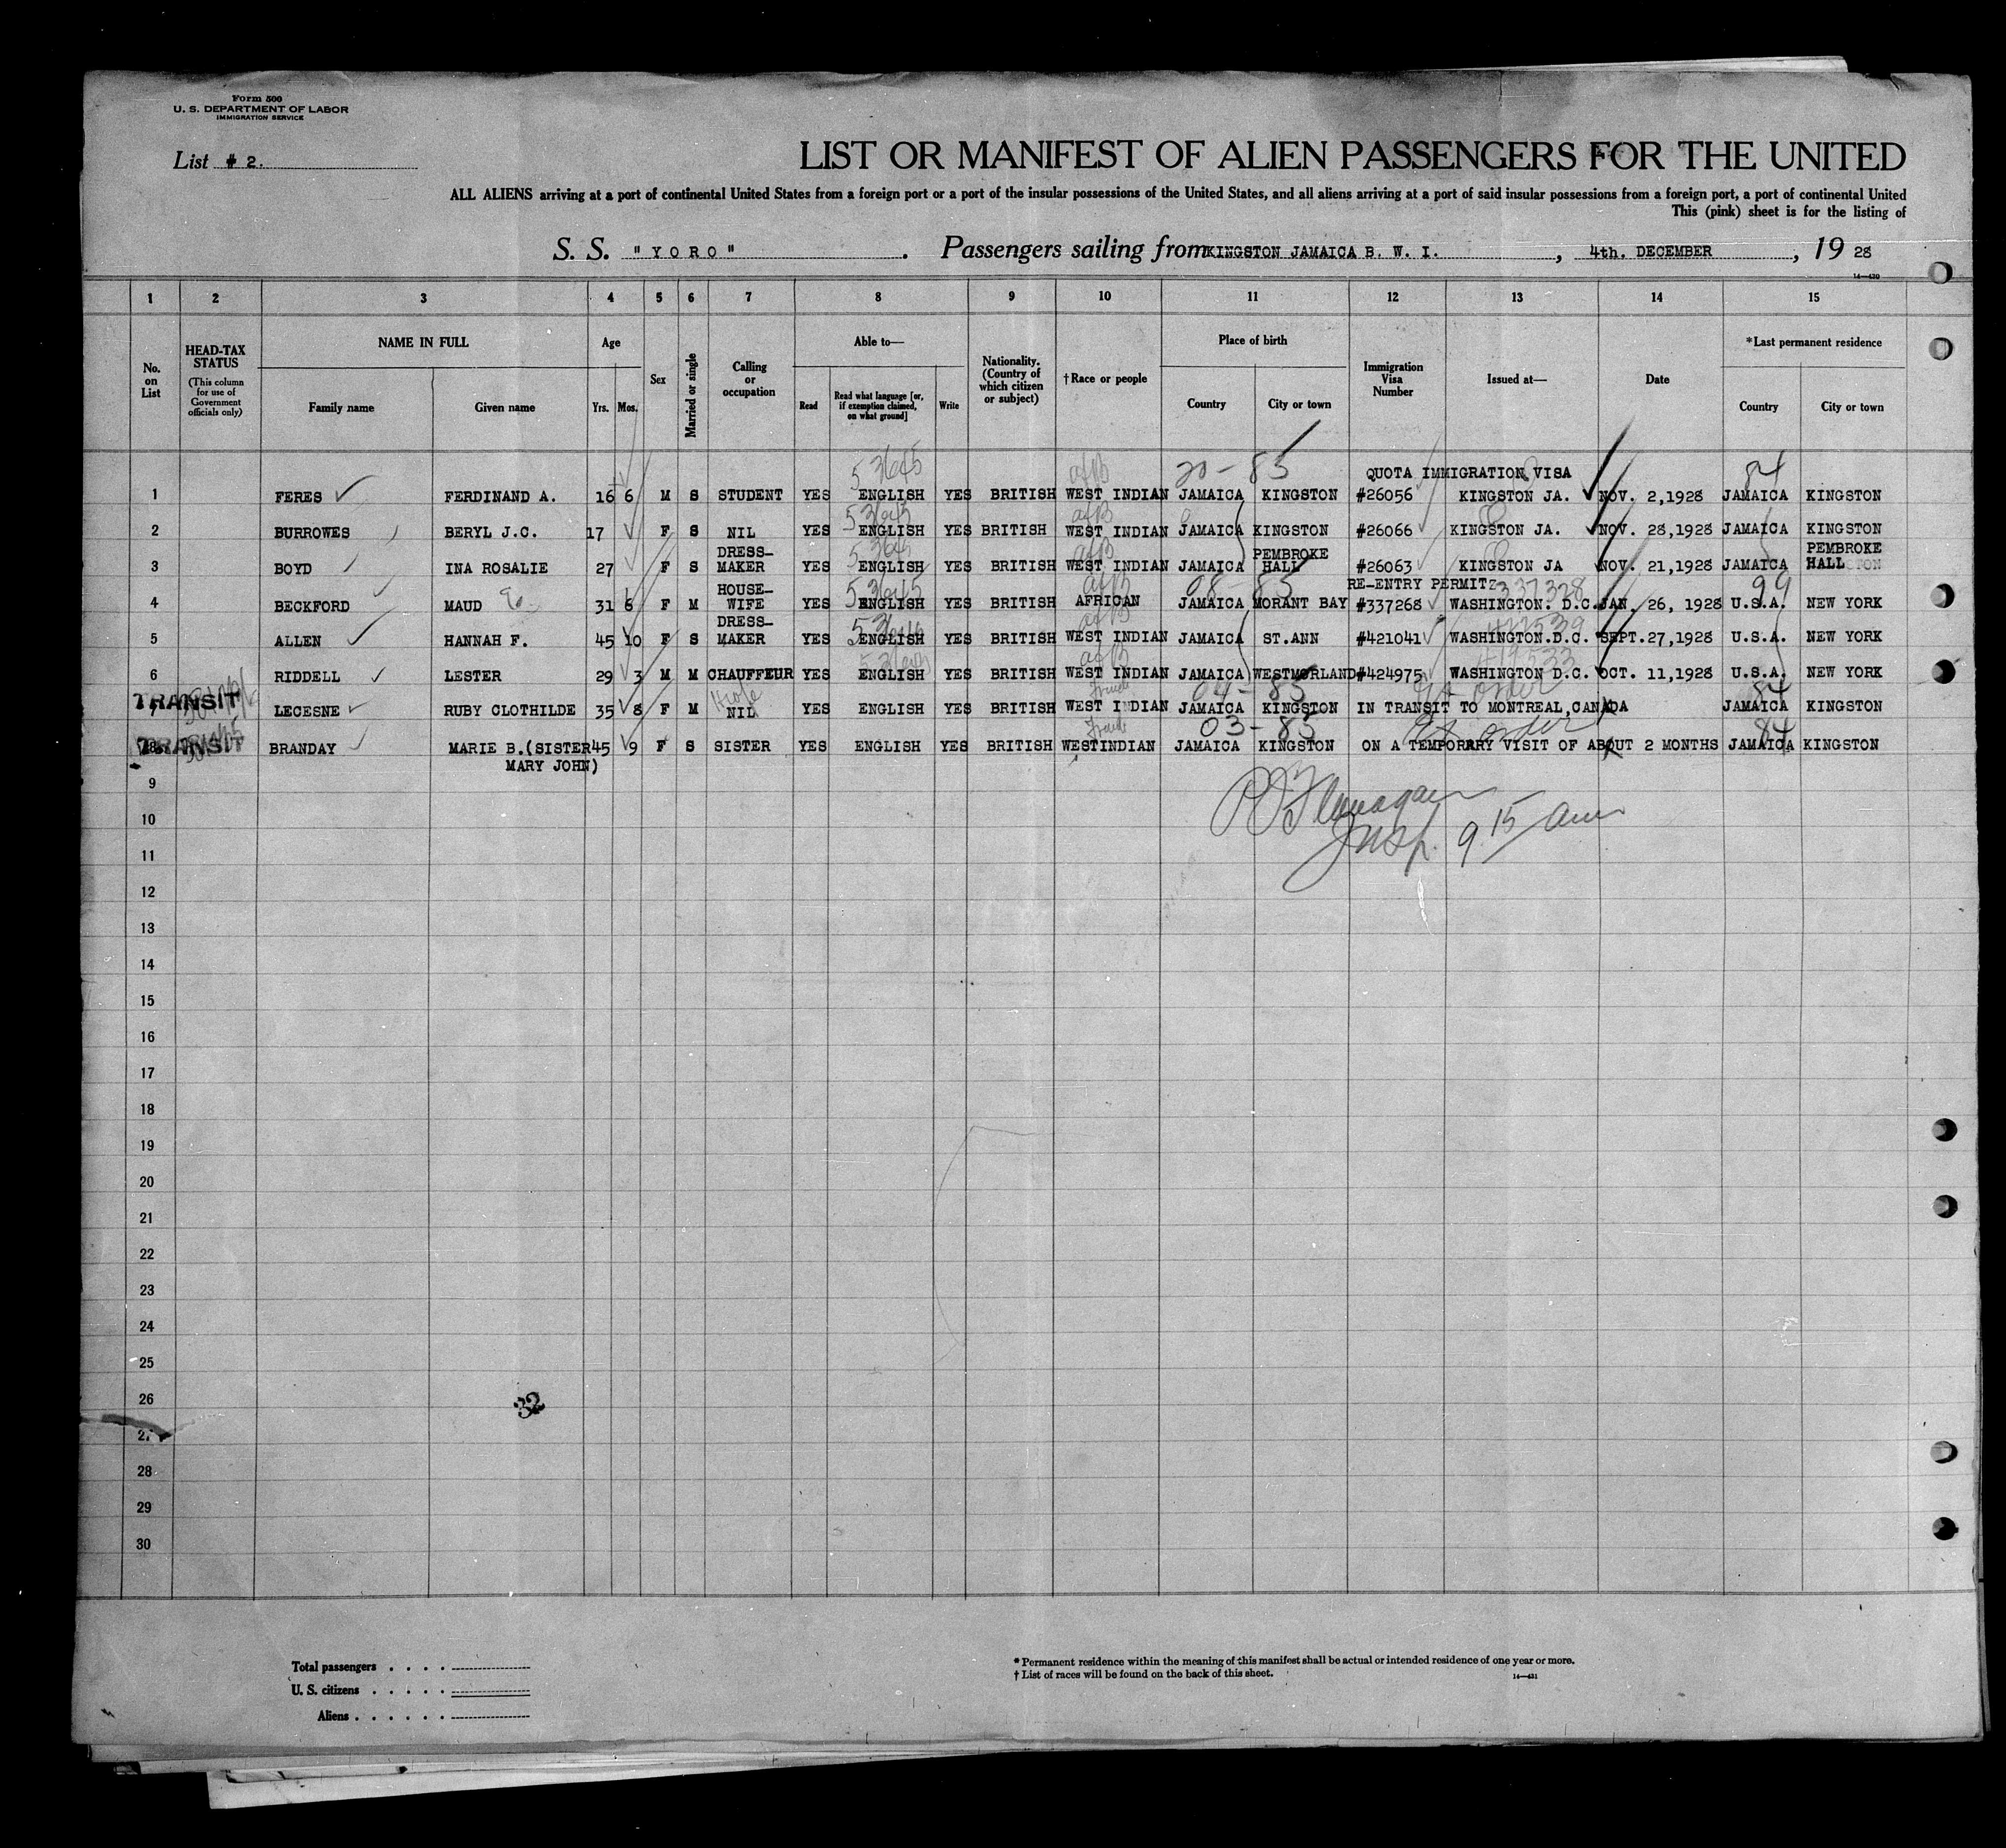 Form 500
U. S. DEPARTMENT OF LABOR
IMMIGRATION SERVICE
List # 2.
LIST OR MANIFEST OF ALIEN PASSENGERS FOR THE UNITED
ALL ALIENS arriving at a port of continental United States from a foreign port or a port of the insular possessions of the United States, and all aliens arriving at a port of said insular possessions from a foreign port, a port of continental United
This (pink) sheet is for the listing of
S. S. "YORO". Passengers sailing from KINGSTON JAMAICA B. W. I., 4th. DECEMBER, 1928
14—430
1 2 3 4 5 6 7 8 9 10 11 12 13 14 15
No. on List
HEAD-TAX STATUS
(This column for use of Government officials only)
NAME IN FULL
Family name Given name
Age
Yrs. Mos.
Sex
Married or single
Calling or occupation
Able to—
Read Read what language [or, if exemption claimed, on what ground] Write
Nationality. (Country of which citizen or subject)
†Race or people
Place of birth
Country City or town
Immigration Visa Number
Issued at—
Date
*Last permanent residence
Country City or town
53645 afB 20-85 84
QUOTA IMMIGRATION VISA
1 FERES FERDINAND A. 16 6 M S STUDENT YES ENGLISH YES BRITISH WEST INDIAN JAMAICA KINGSTON #26056 KINGSTON JA. NOV. 2,1928 JAMAICA KINGSTON
53645 afB
2 BURROWES BERYL J.C. 17 F S NIL YES ENGLISH YES BRITISH WEST INDIAN JAMAICA KINGSTON #26066 KINGSTON JA. NOV. 28,1928 JAMAICA KINGSTON
53645 afB
3 BOYD INA ROSALIE 27 F S DRESS-MAKER YES ENGLISH YES BRITISH WEST INDIAN JAMAICA PEMBROKE HALL #26063 KINGSTON JA NOV. 21,1928 JAMAICA PEMBROKE HALL
53645 afB 08-85 337328 99
RE-ENTRY PERMIT
4 BECKFORD MAUD 31 6 F M HOUSE-WIFE YES ENGLISH YES BRITISH AFRICAN JAMAICA MORANT BAY #337268 WASHINGTON. D.C. JAN. 26, 1928 U.S.A. NEW YORK
53645 afB
5 ALLEN HANNAH F. 45 10 F S DRESS-MAKER YES ENGLISH YES BRITISH WEST INDIAN JAMAICA ST.ANN #421041 WASHINGTON.D.C. SEPT.27,1928 U.S.A. NEW YORK
53645 afB
6 RIDDELL LESTER 29 3 M M CHAUFFEUR YES ENGLISH YES BRITISH WEST INDIAN JAMAICA WESTMORLAND #424975 WASHINGTON D.C. OCT. 11,1928 U.S.A. NEW YORK
TRANSIT 04-85 84
7 LECESNE RUBY CLOTHILDE 35 8 F M NIL YES ENGLISH YES BRITISH WEST INDIAN JAMAICA KINGSTON IN TRANSIT TO MONTREAL,CANADA JAMAICA KINGSTON
TRANSIT 03-85 84
8 BRANDAY MARIE B.(SISTER MARY JOHN) 45 9 F S SISTER YES ENGLISH YES BRITISH WESTINDIAN JAMAICA KINGSTON ON A TEMPORARY VISIT OF ABOUT 2 MONTHS JAMAICA KINGSTON
9
Flanagan
10
Insp. 9 15 am
11
12
13
14
15
16
17
18
19
20
21
22
23
24
25
26
32
27
28
29
30
Total passengers
U. S. citizens
Aliens
* Permanent residence within the meaning of this manifest shall be actual or intended residence of one year or more.
† List of races will be found on the back of this sheet.
14—431